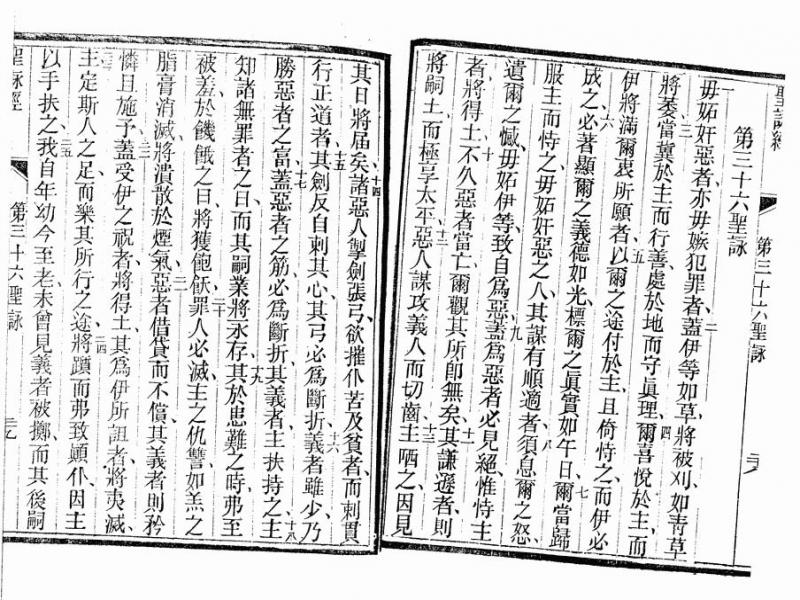 聖詠經 第三十六聖詠
第三十六聖詠
毋妬奸惡者、亦毋嫉犯罪者、二蓋伊等如草、將被刈、如靑草
將萎、三當冀於主而行善、處於地而守眞理、四爾喜悅於主、而
伊將滿爾衷所願者、五以爾之途付於主、且倚恃之、而伊必
成之、六必著顯爾之義德如光、標爾之眞實如午日、七爾當歸
服主而恃之、毋妬奸惡之人、其謀有順適者、八須息爾之怒、
遺爾之憾、毋妬伊等、致自爲惡、九蓋爲惡者必見絕、惟恃主
者將得土、十不久惡者當亡、爾觀其所卽無矣、十一其謙遜者、則
將嗣土而極享太平、十二惡人謀攻義人而切齒、十三主哂之、因見
其日將届矣、十四諸惡人掣劍張弓、欲摧仆苦及貧者、而刺貫
行正道者、十五其劍反自刺其心、其弓必爲斷折、十六義者雖少、乃
勝惡者之富、十七蓋惡者之筋必爲斷折、其義者主扶持之、十八主
知諸無罪者之日、而其嗣業將永存、十九其於患難之時、弗至
被羞、於饑餓之日、將獲飽飫、二十罪人必滅、主之仇讐如羔之
脂膏消滅、將潰散於煙氣、二一惡者借貸而不償、其義者則矜
憐且施予、二二蓋受伊之祝者、將得土、其爲伊所詛者、將夷滅、
二三主定斯人之足、而樂其所行之途、二四將躓而弗致顚仆、因主
以手扶之、二五我自年幼、今至老、未曾見義者被擲、而其後嗣
聖詠經 第三十六聖詠